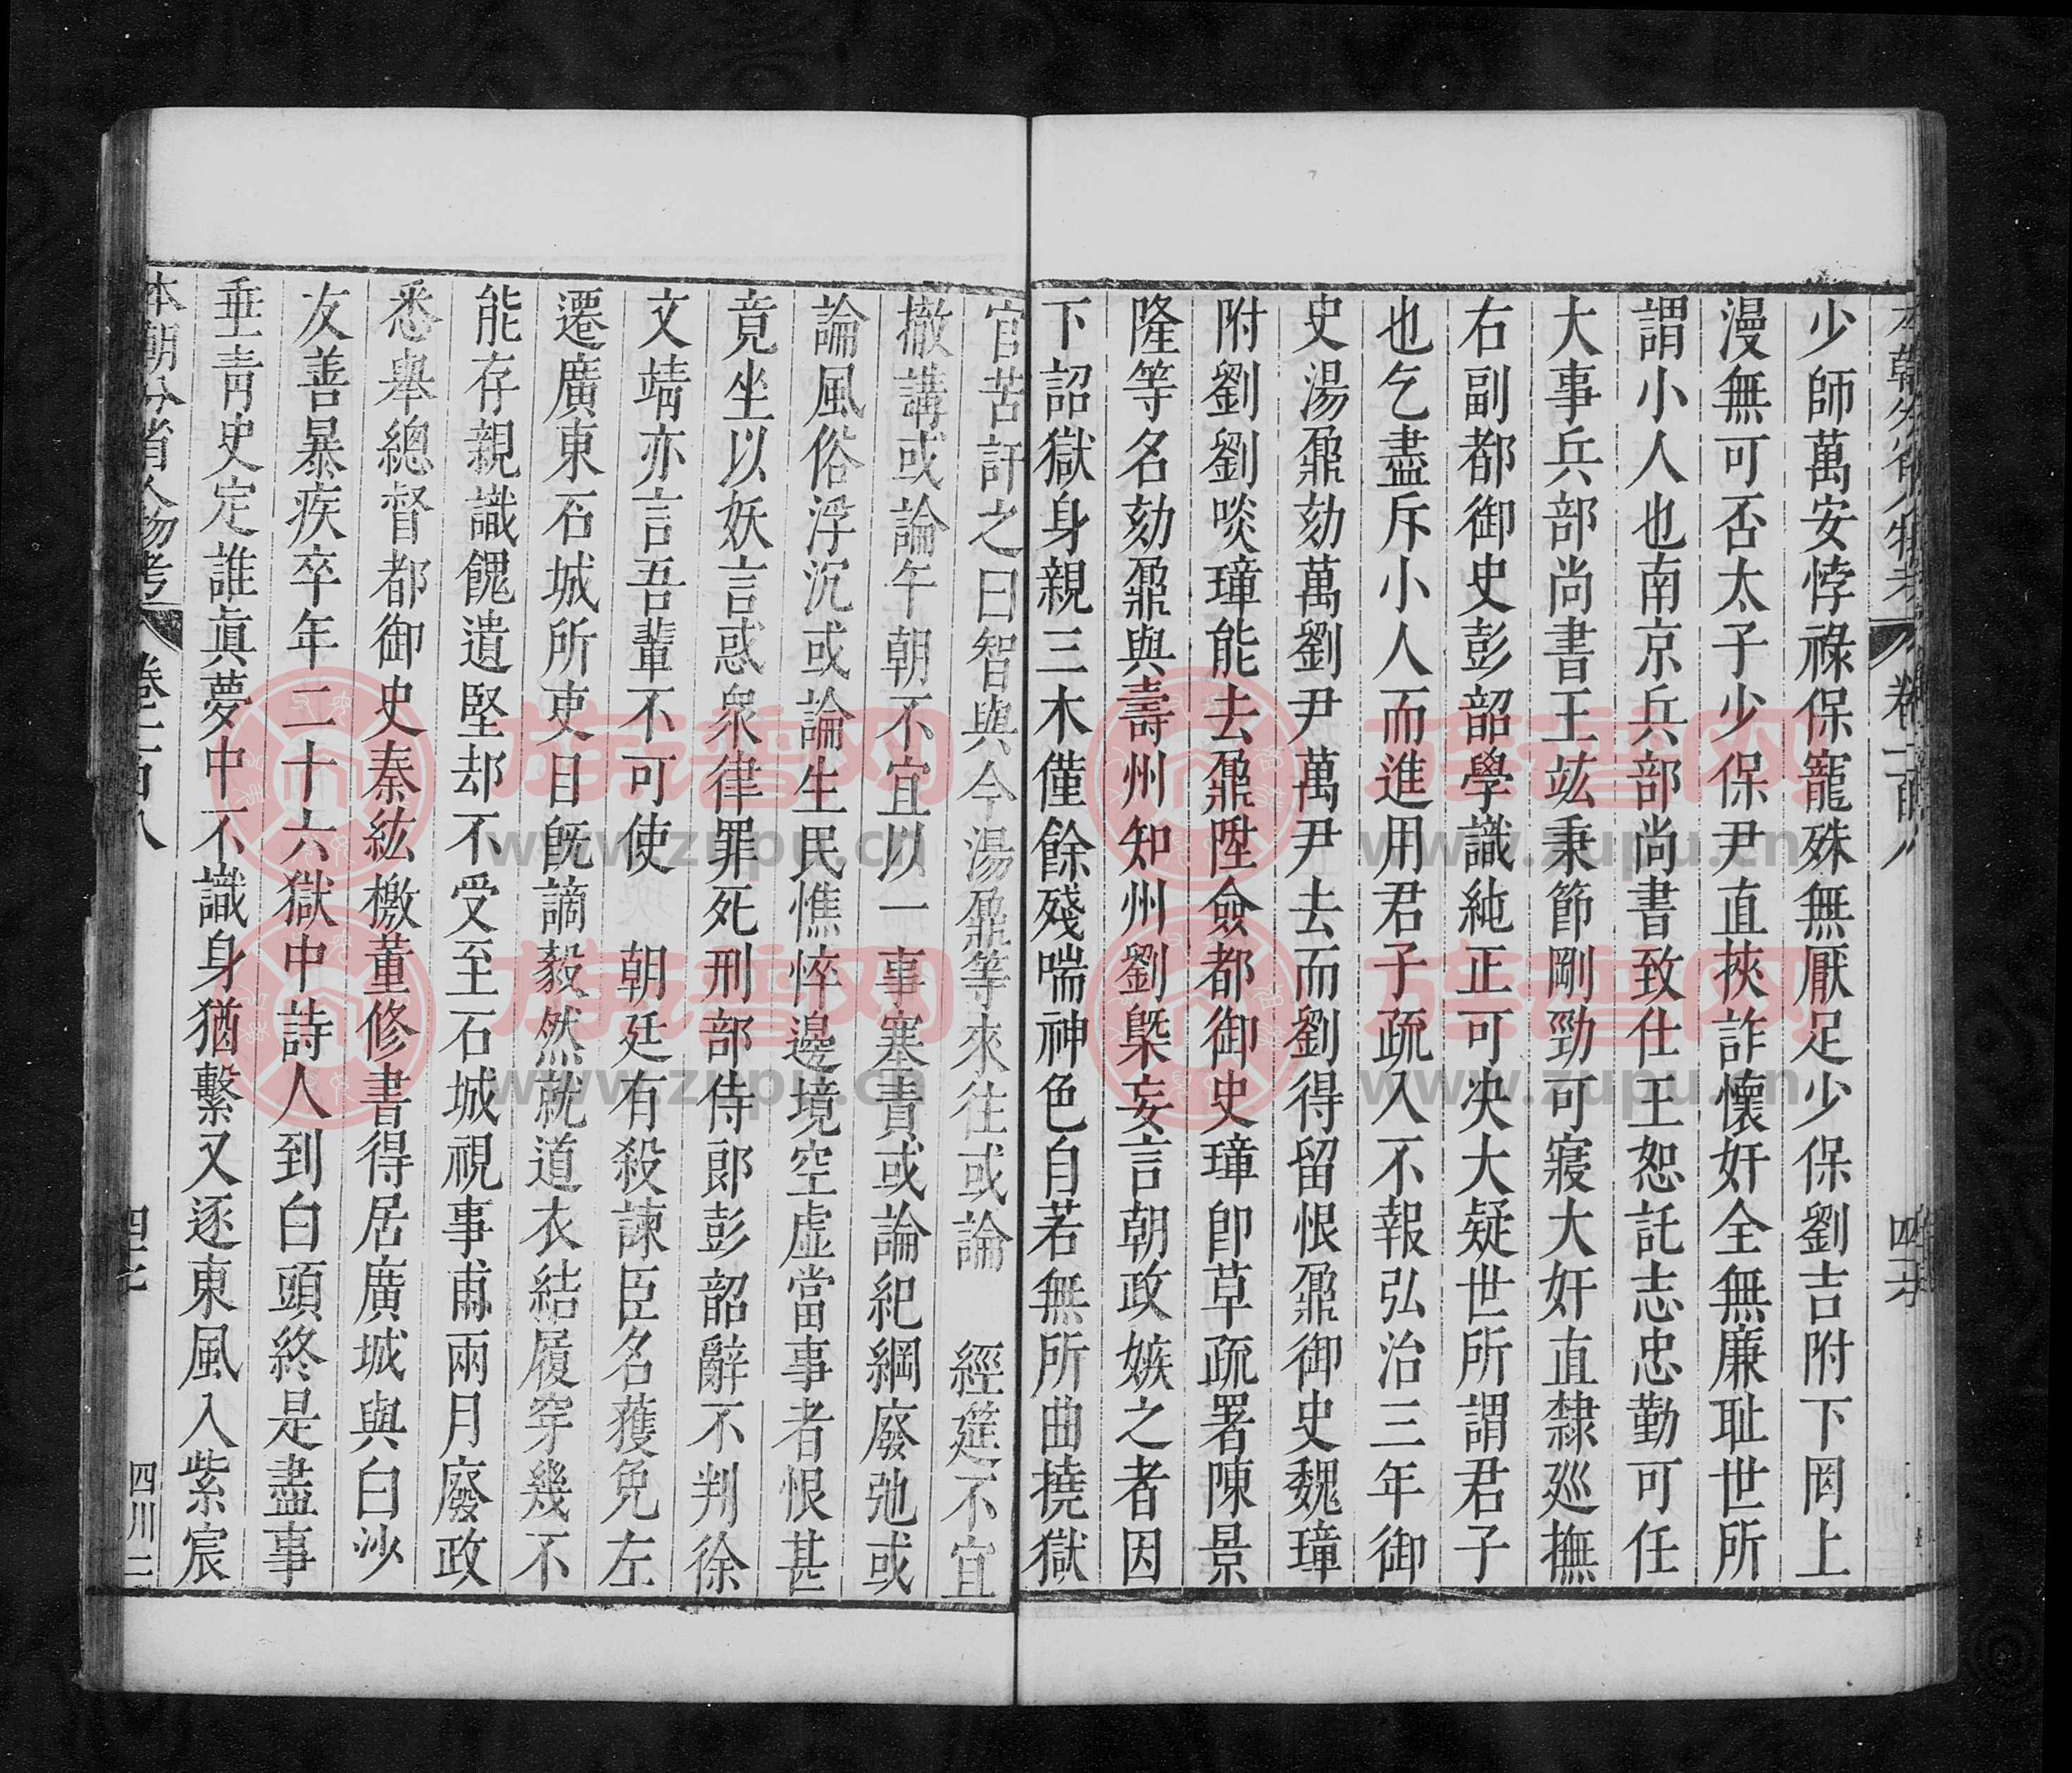 少師萬安悖祿保寵殊無厭足少保劉吉附下罔上
漫無可否太子少保尹直挾詐懷奸全無廉耻世所
謂小人也南京兵部尚書致仕王恕託志忠勤可任
大事兵部尚書王竑秉節剛勁可寢大奸直隸巡撫
右副都御史彭韶學識純正可决大疑世所謂君子
也乞盡斥小人而進用君子疏入不報弘治三年御
史湯鼐劾萬劉尹萬尹去而劉得留恨鼐御史魏璋
附劉劉啖璋能去鼐陞僉都御史璋卽草疏署陳景
隆等名劾鼐與壽州知州劉槩妄言朝政嫉之者因
下詔獄身親三木僅餘殘喘神色自若無所曲撓獄
官苦訐之曰智與今湯鼐等來往或論 經筵不宜
撤講或論午朝不宜以一事塞責或論紀綱廢弛或
論風俗浮沉或論生民憔悴邊境空虛當事者恨甚
竟坐以妖言惑衆律罪死刑部侍郎彭韶辭不判徐
文靖亦言吾輩不可使 朝廷有殺諫臣名獲免左
遷廣東石城所吏目既謫毅然就道衣結履穿幾不
能存親識餽遺堅却不受至石城視事甫兩月廢政
悉舉總督都御史秦紘檄董修書得居廣城與白沙
友善暴疾卒年二十六獄中詩人到白頭終是盡事
垂青史定誰眞夢中不識身猶繫又逐東風入紫宸
本朝分省人物考 卷一百八 四川二
族譜网
www.zupu.cn
族譜网
www.zupu.cn
族譜网
www.zupu.cn
族譜网
www.zupu.cn